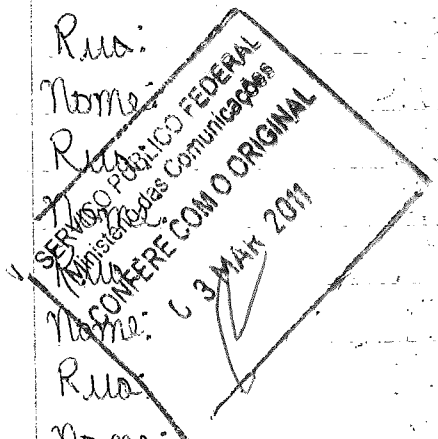 Rua:
Nome:
Rua:
Nome:
Rua:
Nome:
Rua:
Nome:
SERVIÇO PÚBLICO FEDERAL
Ministério das Comunicações
CONFERE COM O ORIGINAL
03 MAR 2011